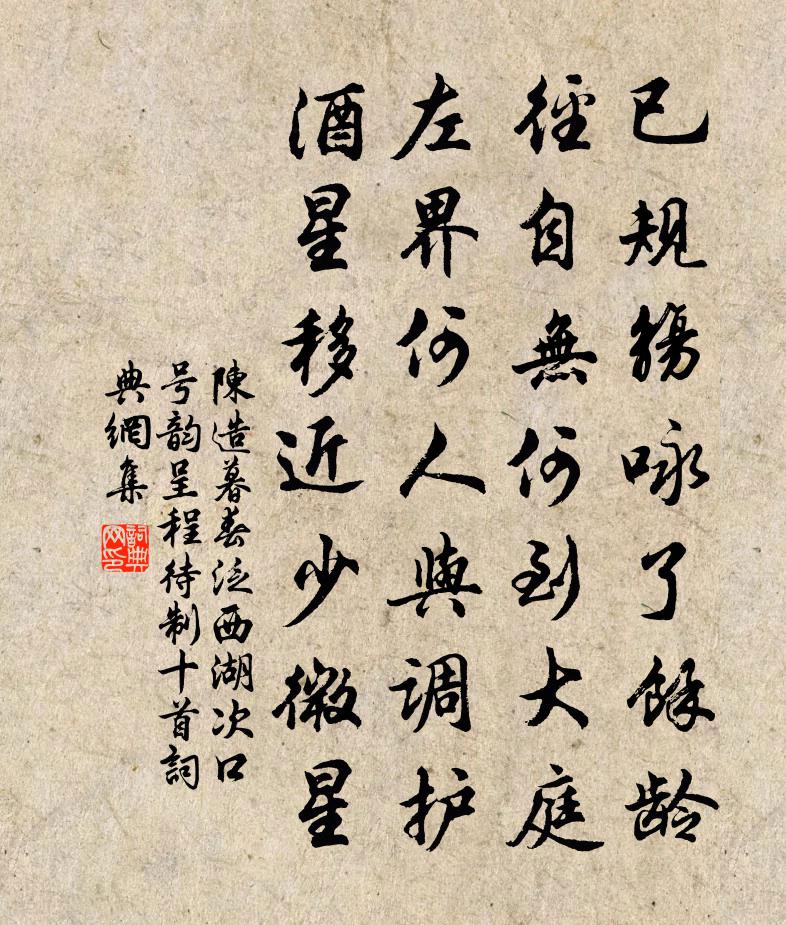 已規觴咏了餘龄
徑自無何到大庭
左界何人與調护
酒星移近少微星
陳造暮春泛西湖次口
号韵呈程待制十首詞
典網集
詞典网印